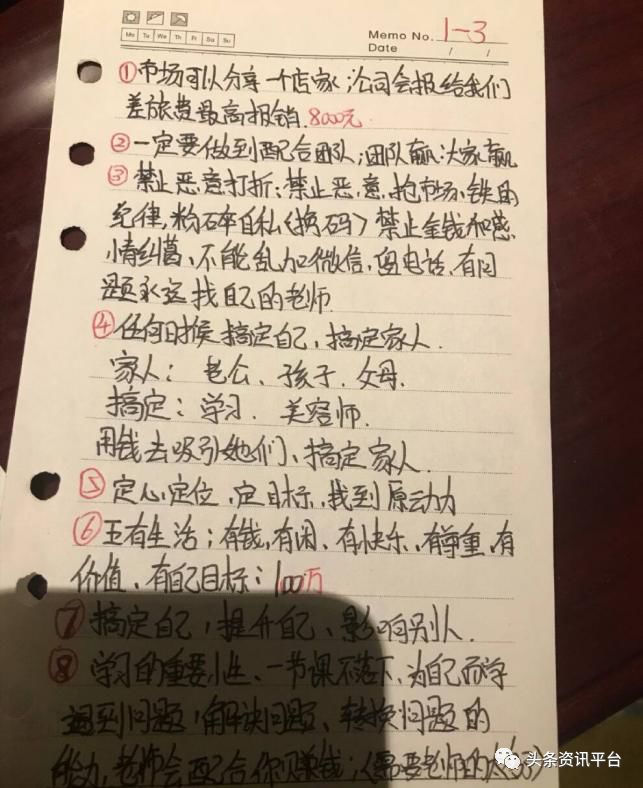 Mo Tu We Th Fr Sa Su
Memo No. 1-3
Date / /
①市场可以分享一个店家;公司会报给我们
差旅费最高报销.8000元.
②一定要做到配合团队;团队赢:大家赢
③禁止恶意打折;禁止恶意抢市场,铁的
纪律,粉碎自私<换码>禁止金钱和感
情纠葛,不能乱加微信,留电话,有问
题永远找自己的老师.
④任何时候搞定自己,搞定家人.
家人:老公、孩子.父母.
搞定:学习.美容师.
用钱去吸引她们、搞定家人.
⑤定心,定位,定目标,找到原动力
⑥五有生活;有钱,有闲、有快乐、有尊重,有
价值、有自己目标:100万
⑦搞定自己,提升自己、影响别人.
⑧学习的重要性、一节课不落下,为自己而学
遇到问题,解决问题、转换问题的
能力,老师会配合你赚钱;(需要老师的
头条资讯平台